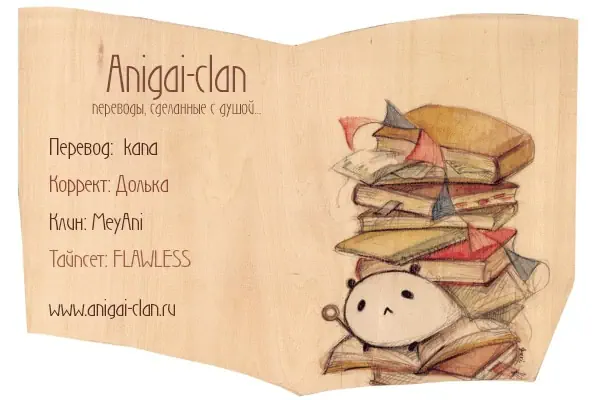 Anigai-clan
переводы, сделанные с душой...
Перевод: kana
Коррект: Долька
Клин: MeyAni
Тайпсет: FLAWLESS
www.anigai-clan.ru